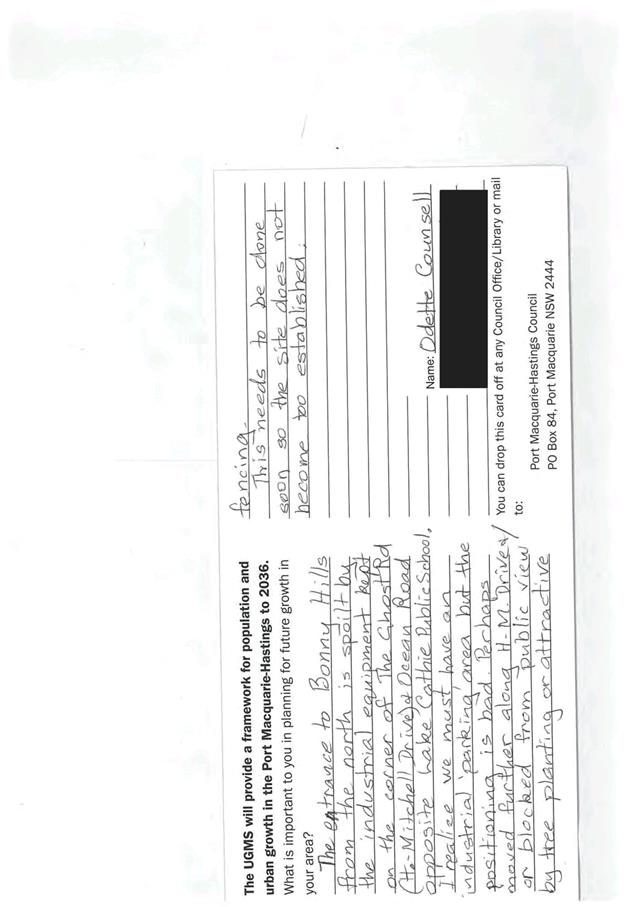 The UGMS will provide a framework for population and
urban growth in the Port Macquarie-Hastings to 2036.
What is important to you in planning for future growth in
your area?
The entrance to Bonny Hills
from the north is spoilt by
the industrial equipment kept
on the corner of The Ghost Rd
Mitchell Drive) & Ocean Road
opposite Lake Cathie Public School.
I realize we must have an
industrial 'parking' area but the
positioning is bad. Perhaps
moved further along H-M. Drive &/
or blocked from public view
by tree planting or attractive
fencing.
This needs to be done
soon so the site does not
become too established.
Name: Odette Counsell
You can drop this card off at any Council Office/Library or mail
to:
Port Macquarie-Hastings Council
PO Box 84, Port Macquarie NSW 2444